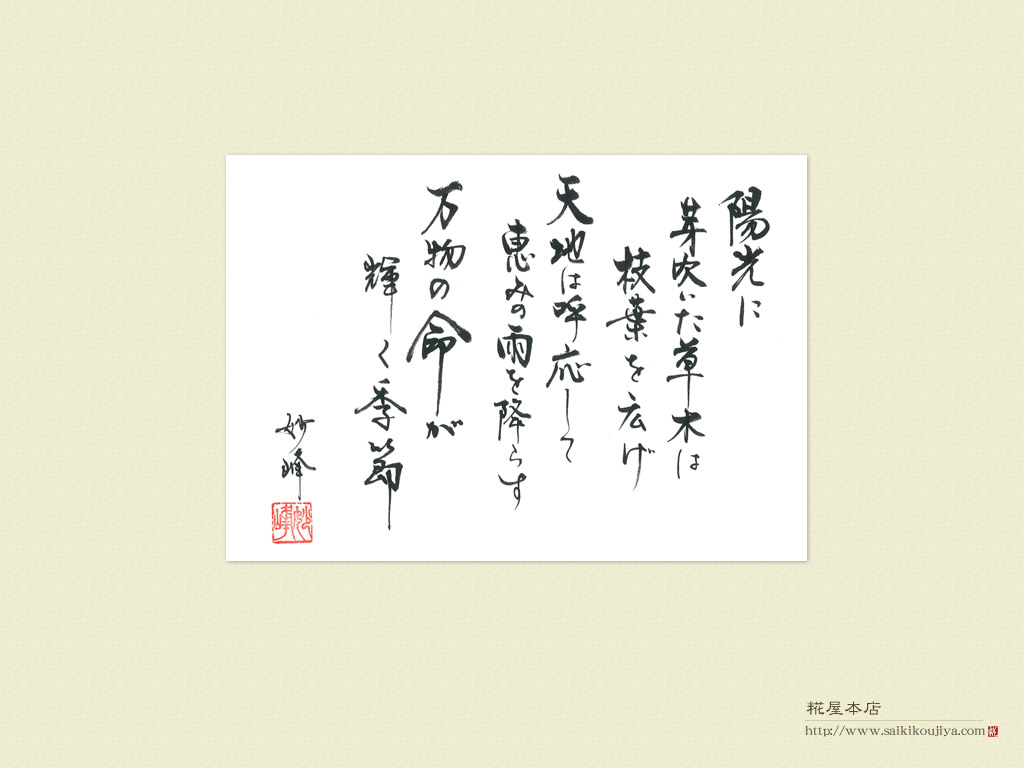 陽光に
芽吹いた草木は
枝葉を広げ
天地は呼応して
恵みの雨を降らす
万物の命が
輝く季節
妙峰
妙峰
糀屋本店
http://www.saikikoujiya.com
糀